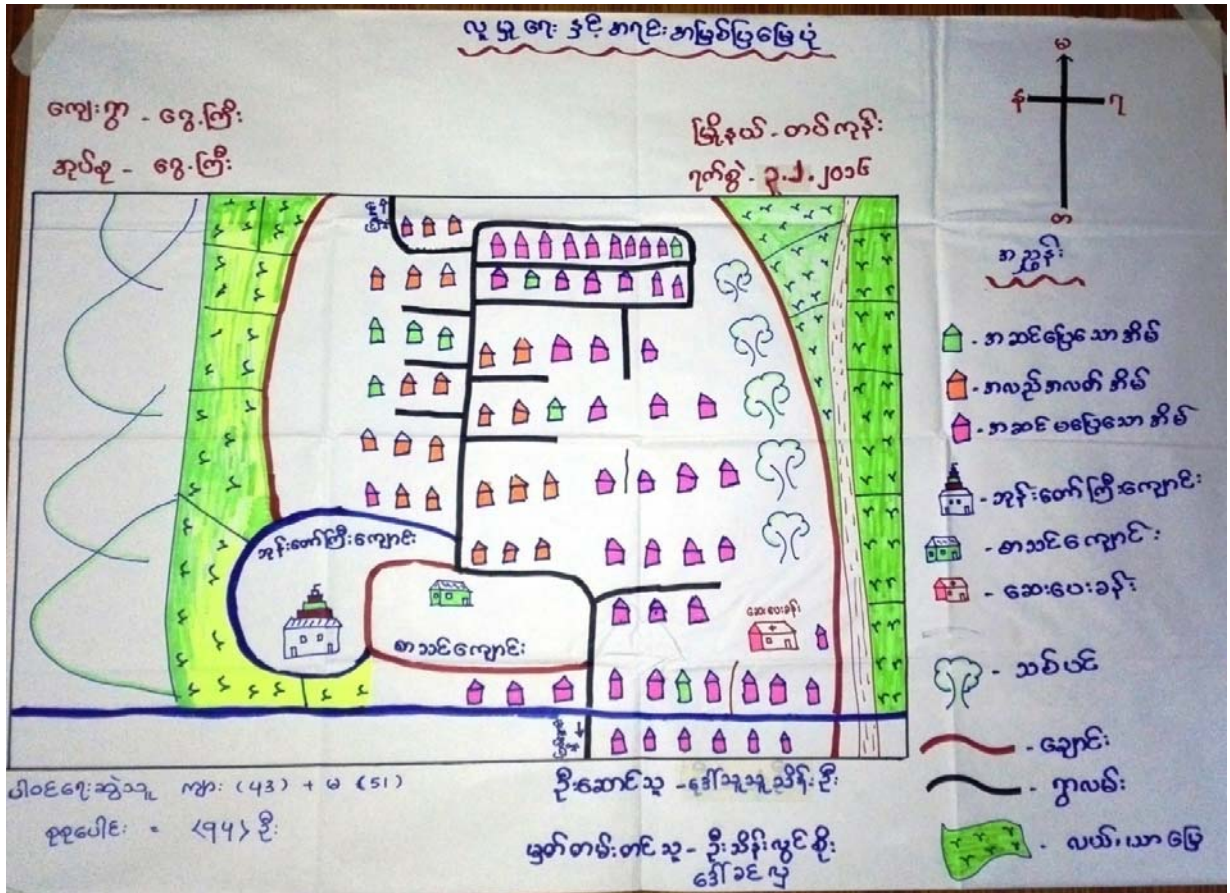 လူမှုရေး နှင့် အရင်းအမြစ်ပြမြေပုံ
ကျေးရွာ - ငွေ့ကြီး
အုပ်စု - ငွေ့ကြီး
မြို့နယ် - တပ်ကုန်း
ရက်စွဲ - ၃.၂.၂၀၁၆
မ
န
ရ
တ
အညွှန်း
- အဆင်ပြေသောအိမ်
- အလည်အလတ်အိမ်
- အဆင်မပြေသောအိမ်
- ဘုန်းတော်ကြီးကျောင်း
- စာသင်ကျောင်း
- ဆေးပေးခန်း
- သစ်ပင်
- ချောင်း
- ရွာလမ်း
- လယ်၊ယာမြေ
ဘုန်းတော်ကြီးကျောင်း
စာသင်ကျောင်း
ဆေးပေးခန်း
ပါဝင်ရေးဆွဲသူ ကျား (43) + မ (51)
စုစုပေါင်း = <၅၄> ဦး
ဦးဆောင်သူ - ဒေါ်သူသူညိန်းဦး
မှတ်တမ်းတင်သူ - ဦးသိန်းလွင်စိုး
ဒေါ်ခင်လှ